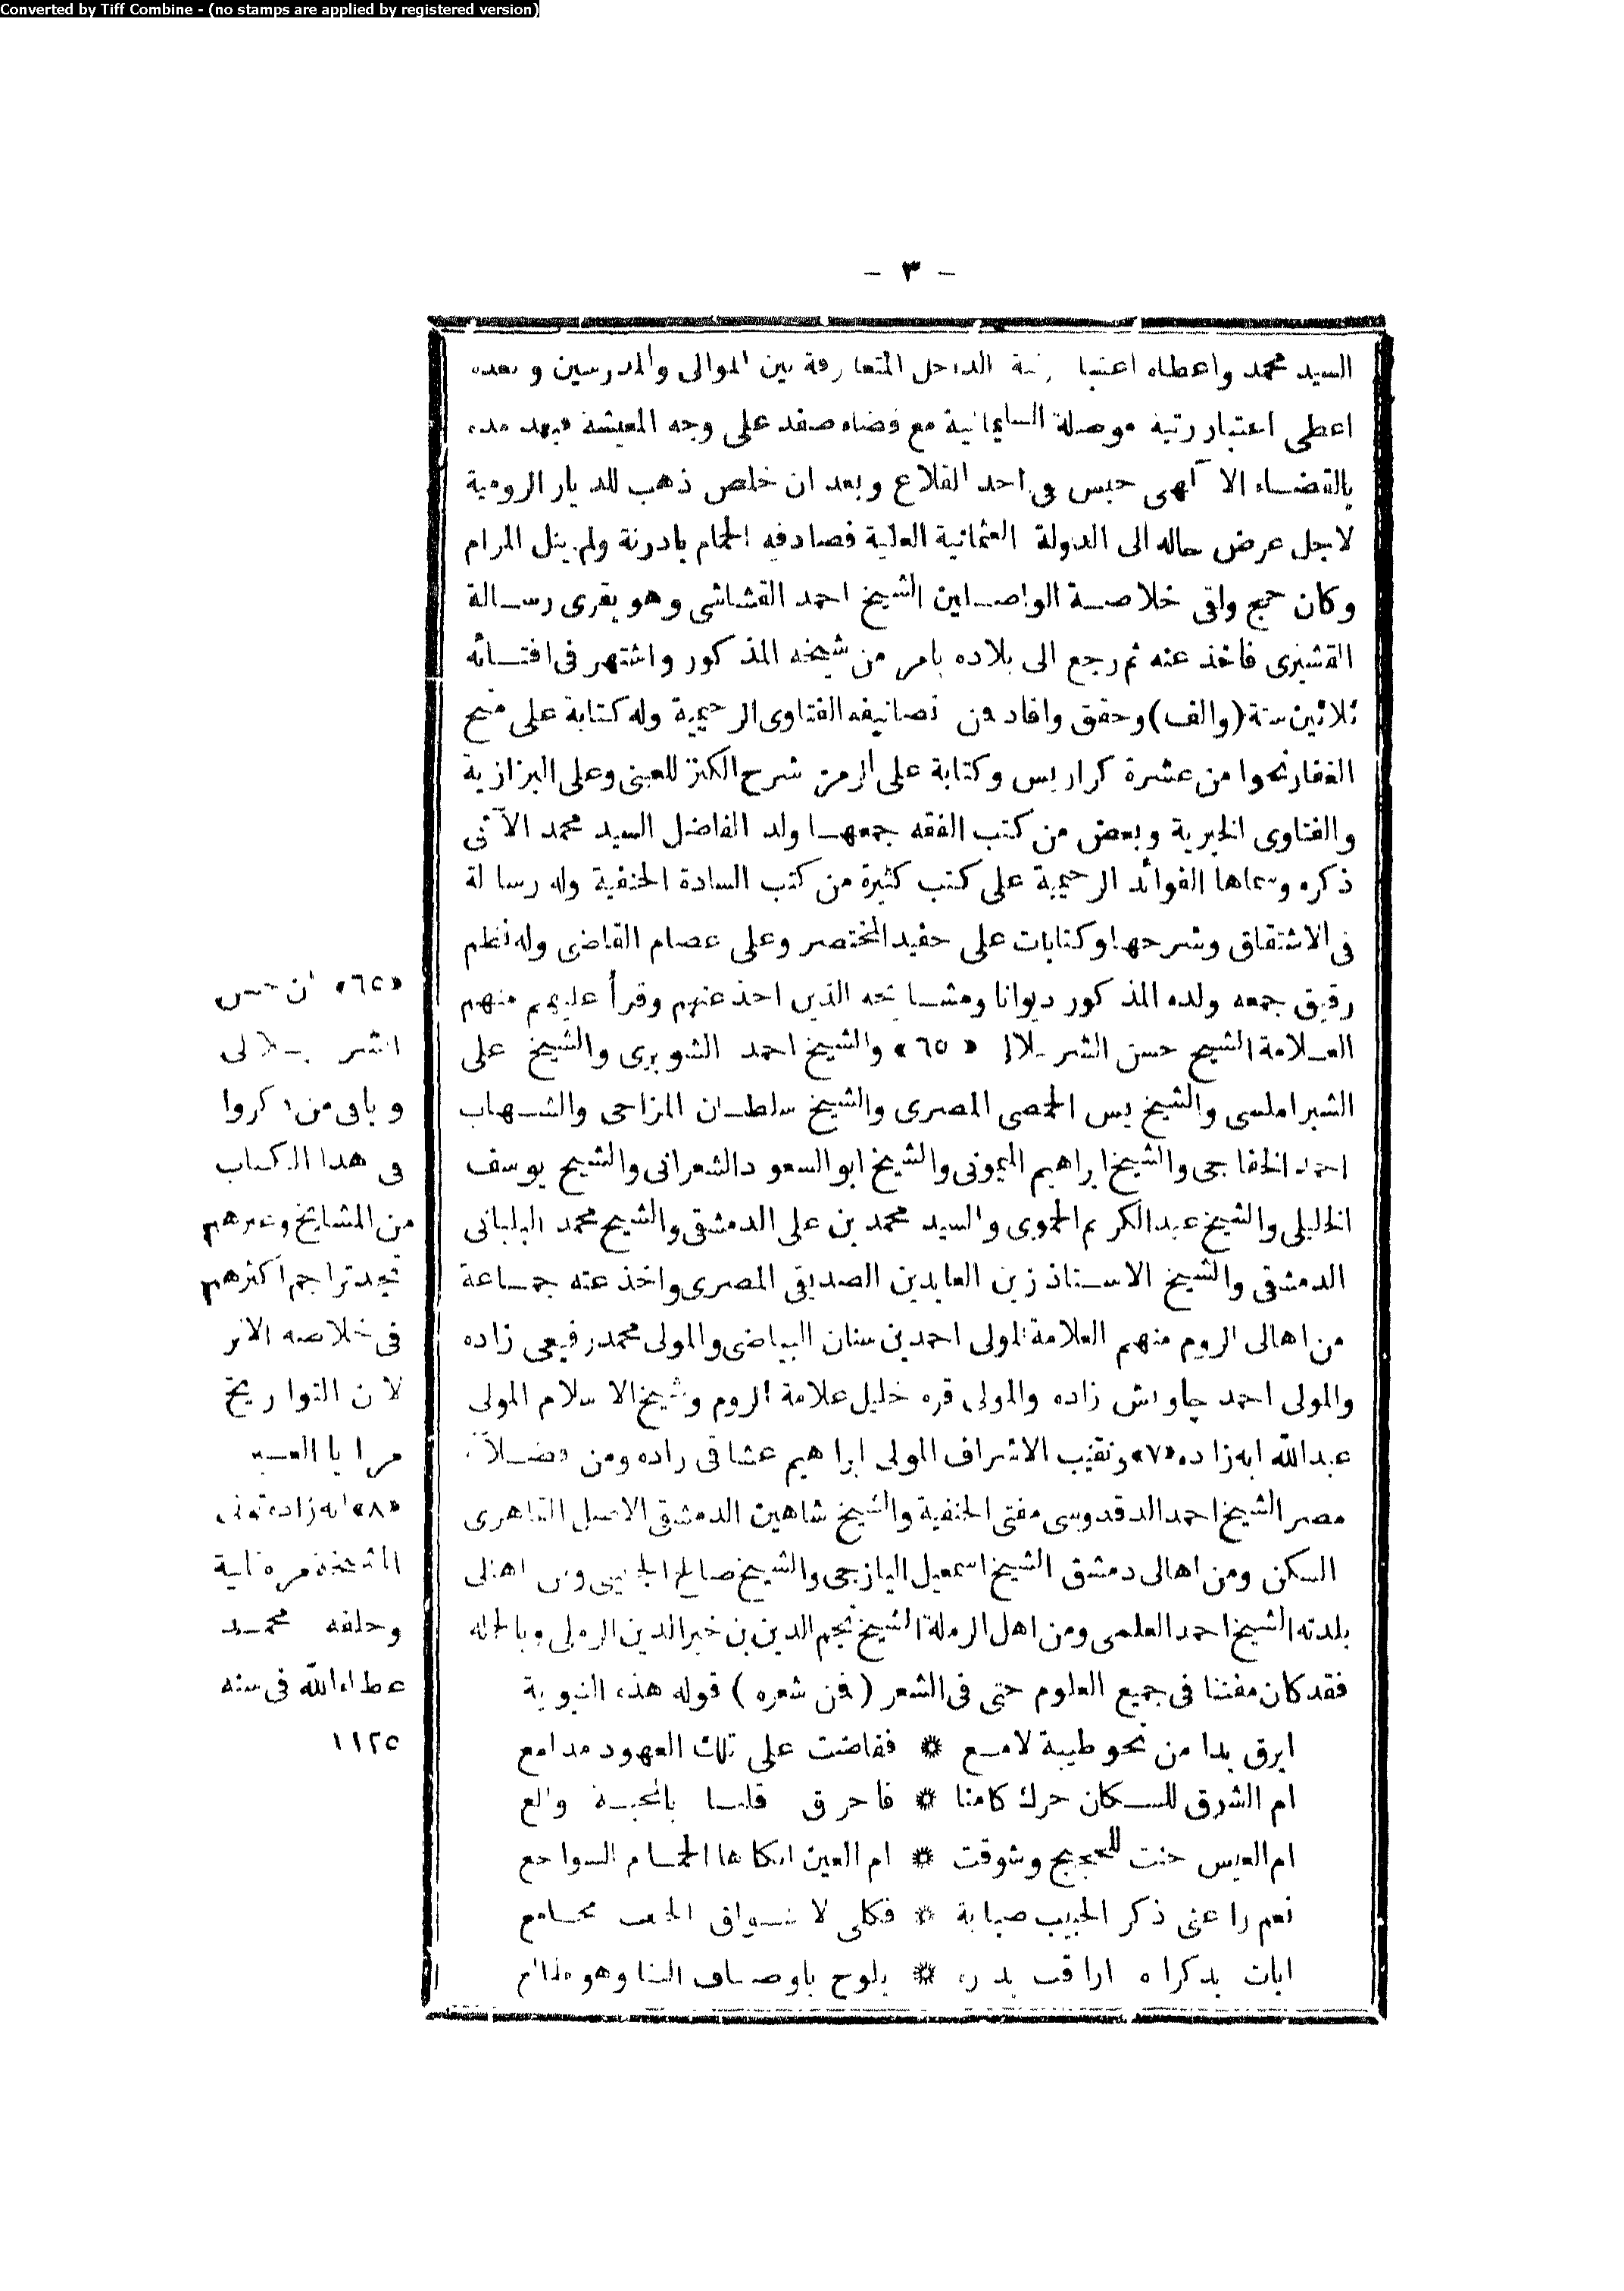 Converted by Tiff Combine - (no stamps are applied by registered version)
- ٣ -
السيد محمد واعطاه الداخل المتعارفة بين الموالى والمدرسين وبعده
اعطى اعتبار رتبة موصلة السليمانية مع قضاء صفد على وجه المعيشة فبعد مدة
بالقضاء الا آلهى حبس فى احد القلاع وبعد ان خلص ذهب للديار الرومية
لاجل عرض حاله الى الدولة العثمانية العلية فصادفه الحمام بادرنة ولم ينل المرام
وكان حج ولقى خلاصة الواصلين الشيخ احمد القشاشى وهو يقرى رسالة
القشيرى فاخذ عنه ثم رجع الى بلاده بامر من شيخه المذكور واشتهر فى افتائه
ثلاثين سنة (والف) وحقق وافاد فمن تصانيفه الفتاوى الرحيمية وله كتابة على منح
الغفار نحوا من عشرة كراريس وكتابة على الرمز شرح الكنز للعينى وعلى البزازية
والفتاوى الخيرية وبعض من كتب الفقه جمعها ولد الفاضل السيد محمد الآتى
ذكره وسماها الفوائد الرحيمية على كتب كثيرة من كتب السادة الحنفية وله رسالة
فى الاشتقاق وشرحها وكتابات على حفيد المختصر وعلى عصام القاضى وله نظم
رقيق جمعه ولده المذكور ديوانا ومشايخه الذين اخذ عنهم وقرأ عليهم منهم
العلامة الشيخ حسن «٦٥» والشيخ احمد الشوبرى والشيخ على
الشبراملسى والشيخ يس الحمصى المصرى والشيخ سلطان المزاحى والشهاب
احمد الخفاجى والشيخ ابراهيم الميمونى والشيخ ابوالسعود الشعرانى والشيخ يوسف
الخليلى والشيخ عبدالكريم الحموى والسيد محمد بن على الدمشقى والشيخ محمد البلبانى
الدمشقى والشيخ الاستاذ زين العابدين الصديقى المصرى واخذ عنه جماعة
من اهالى الروم منهم العلامة المولى احمد بن سنان البياضى والمولى محمد رفيعى زاده
والمولى احمد چاوش زاده والمولى قره خليل علامة الروم وشيخ الاسلام المولى
عبدالله ابه زاده «٧» ونقيب الاشراف المولى ابراهيم عشاقى زاده ومن فضلآء
مصر الشيخ احمد الدقدوسى مفتى الحنفية والشيخ شاهين الدمشقى الاصل القاهرى
السكن ومن اهالى دمشق الشيخ اسمعيل اليازجى والشيخ صالح ومن اهالى
بلدته الشيخ احمد العلمى ومن اهل الرملة الشيخ نجم الدين بن خير الدين الرملى وبالجملة
فقد كان مفننا فى جميع العلوم حتى فى الشعر (فمن شعره) قوله هذه النبوية
ابرق بدا من نحو طيبة لامع * ففاضت على تلك العهود مدامع
ام الشوق للسكان حرك كامنا * فاحرق قلبا بالمحبة والع
ام العيس حنت للحجيج وشوقت * ام العين ابكاها الحمام السواجع
نعم راعنى ذكر الحبيب صبابة * فكلى لاشواق الحب مجامع
ابات بذكراه اراقب بدره * يلوح باوصاف السنا وهو طالع
«٦٥» ان حسن
الشرنبلالى
وباقى من ذكروا
فى هذا الكتاب
من المشايخ وغيرهم
تجد تراجم اكثرهم
فى خلاصة الاثر
لان التواريخ
مرايا
«٨» ابه زاده تولى
المشيخة مرة ثانية
وخلفه محمد
عطاءالله فى سنة
١١٢٥